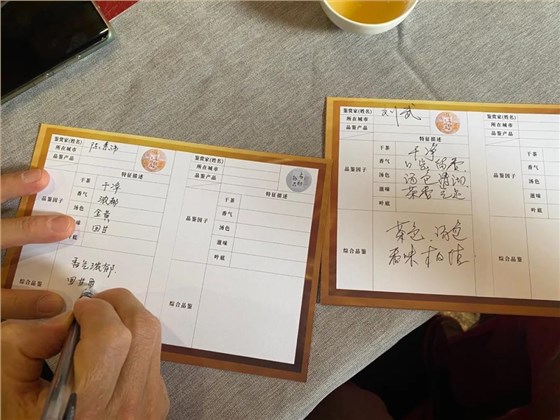 鉴赏家(姓名)
所在城市
品鉴产品
特征描述
特征描述
品鉴因子
干茶
干净
香气
浓郁
汤色
金黄
滋味
回甘
叶底
综合品鉴
浓郁
回甘
干茶
香气
汤色
滋味
叶底
鉴赏家(姓名) 刘武
所在城市
品鉴产品
特征描述
品鉴因子
干茶
干净
香气
口齿留香
汤色
滋味
茶香
叶底
综合品鉴
茶色、汤色
香味
鉴赏家(姓名)
所在城市
品鉴产品
品鉴因子
干茶
香气
汤色
滋味
叶底
综合品鉴